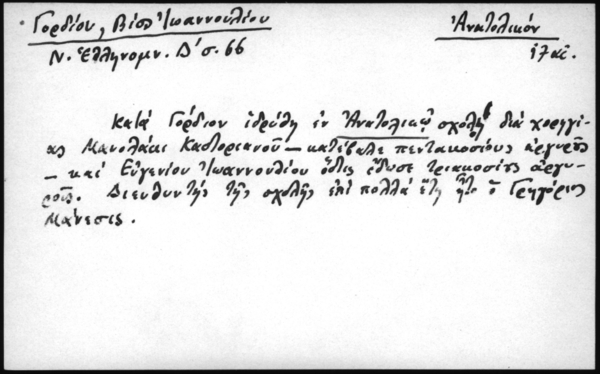 Γορδίου, Βίος Ἰωαννουλίου
Ἀνατολικόν
Ν. Ἑλληνομν. Δ' σ. 66
17 αἰ.
Κατά Γόρδιον ἱδρύθη ἐν Ἀνατολικῷ σχολή διά χορηγί-
ας Μανολάκι Καστοριανοῦ – κατέβαλε πεντακοσίους ἀργυροῦς
– καί Εὐγενίου Ἰωαννουλίου ὅστις ἔδωσε τριακοσίους ἀργυ-
ροῦς. Διευθυντής τῆς σχολῆς ἐπί πολλά ἔτη ἦτο ὁ Γρηγόριος
Μάνεσις.